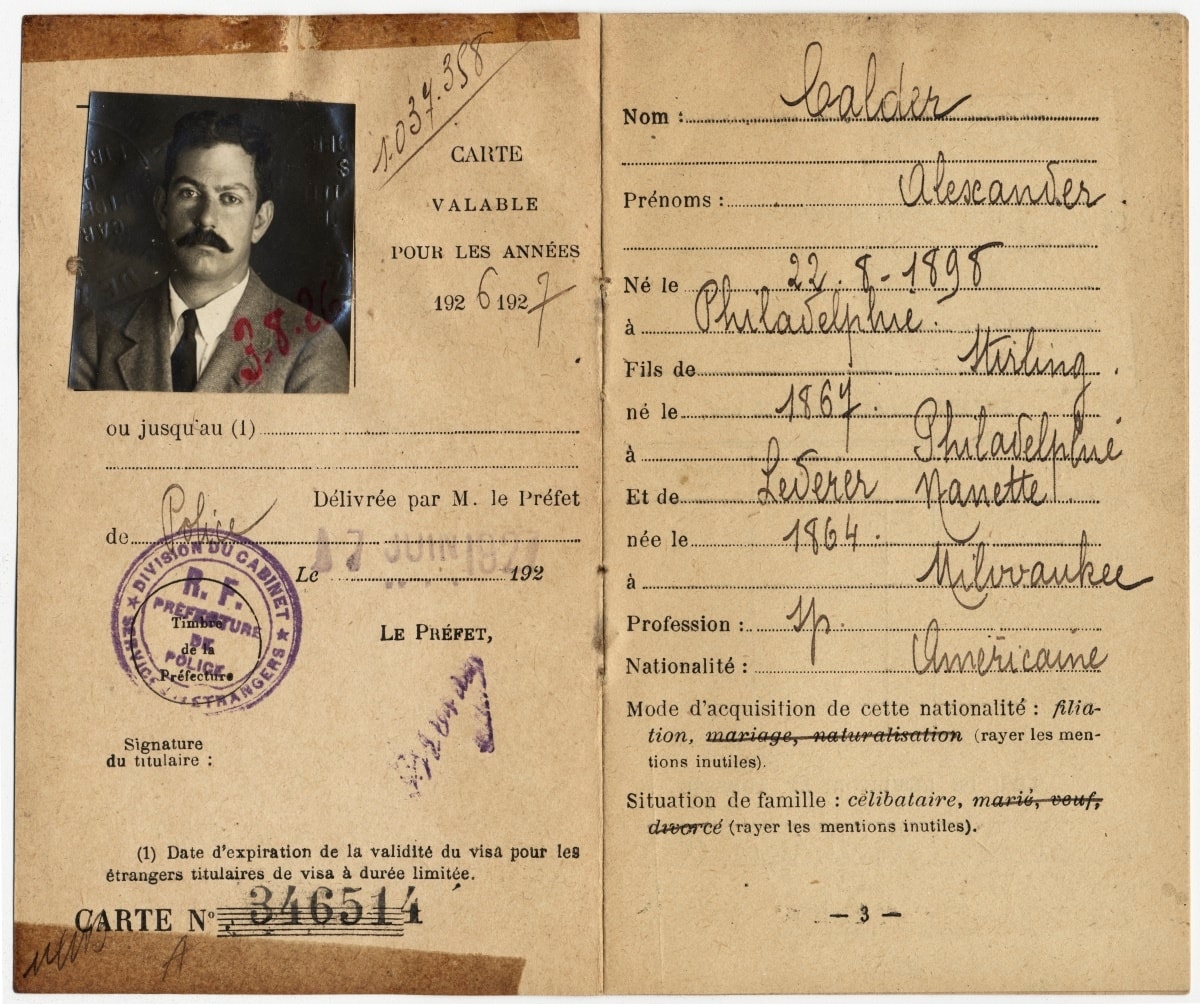 1.037.358
CARTE
VALABLE
POUR LES ANNÉES
1926 1927
3.8.26
ou jusqu'au (1)
Délivrée par M. le Préfet
de Police
17 JUIN 1927
Le 192
DIVISION DU CABINET
R. F.
PRÉFECTURE
DE
POLICE
SERVICE ÉTRANGERS
Timbre
de la
Préfecture
LE PRÉFET,
Signature
du titulaire :
(1) Date d'expiration de la validité du visa pour les
étrangers titulaires de visa à durée limitée.
CARTE N° 346514
A
Nom : Calder
Prénoms : Alexander.
Né le 22.8-1898
à Philadelphie.
Fils de Stirling.
né le 1867.
à Philadelphie
Et de Lederer Nanette
née le 1864.
à Milwaukee
Profession : sp.
Nationalité : Américaine
Mode d'acquisition de cette nationalité : filia-
tion, mariage, naturalisation (rayer les men-
tions inutiles).
Situation de famille : célibataire, marié, veuf,
divorcé (rayer les mentions inutiles).
— 3 —